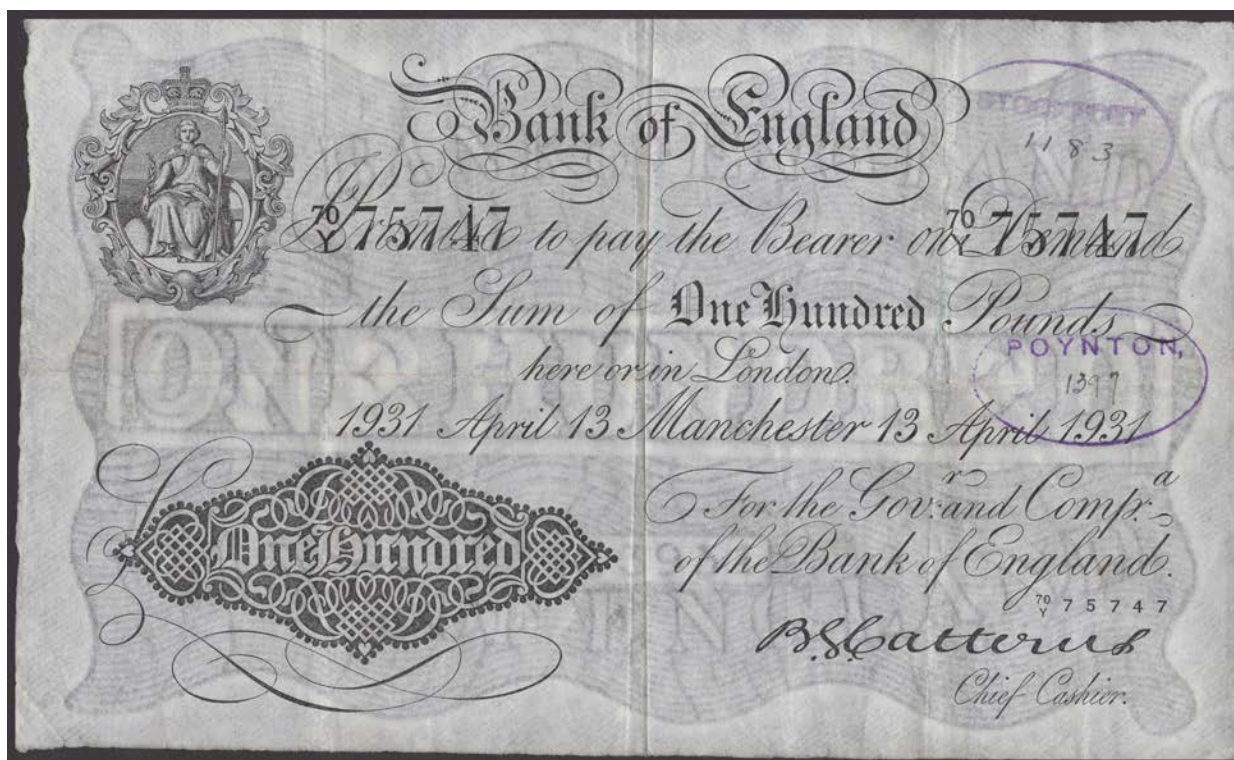 Bank of England
STOCKPORT
1183
70/Y 75747 70/Y 75747
I Promise to pay the Bearer on Demand
the Sum of One Hundred Pounds
here or in London.
POYNTON,
1397
1931 April 13 Manchester 13 April 1931
For the Gov:r and Comp:a
of the Bank of England.
70/Y 75747
B.G. Catterns
Chief Cashier.
£ One Hundred
ONE HUNDRED